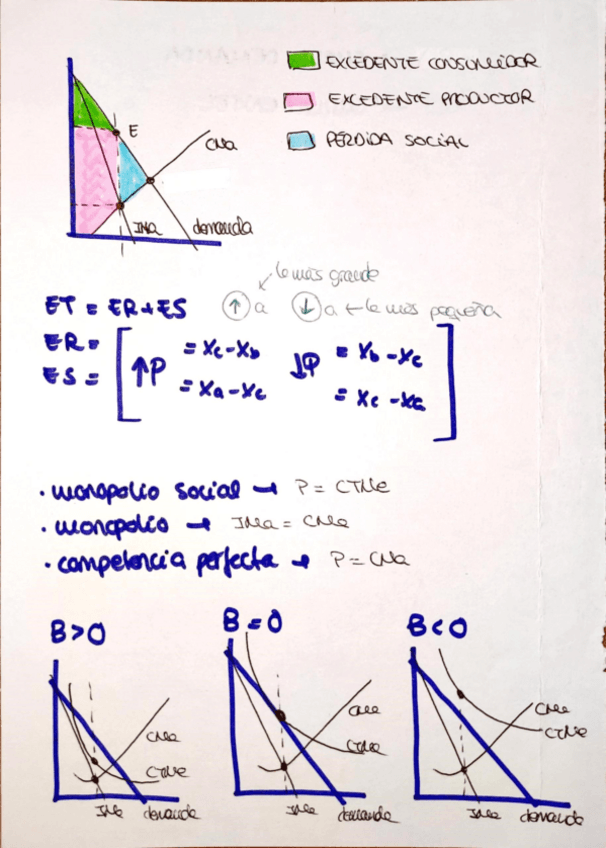 EXCEDENTE CONSUMIDOR
EXCEDENTE PRODUCTOR
PÉRDIDA SOCIAL
E
CMa
IMa
demanda
la más grande
ET = ER + ES ↑ a ↓ a ← la más pequeña
ER =
ES =
↑P = Xc - Xb ↓P = Xb - Xc
= Xa - Xc = Xc - Xa
· monopolio social → P = CTMe
· monopolio → IMa = CMa
· competencia perfecta → P = CMa
B > 0
B = 0
B < 0
CMa
CTMe
IMa demanda
CMa
CTMe
IMa demanda
CMa
CTMe
IMa demanda